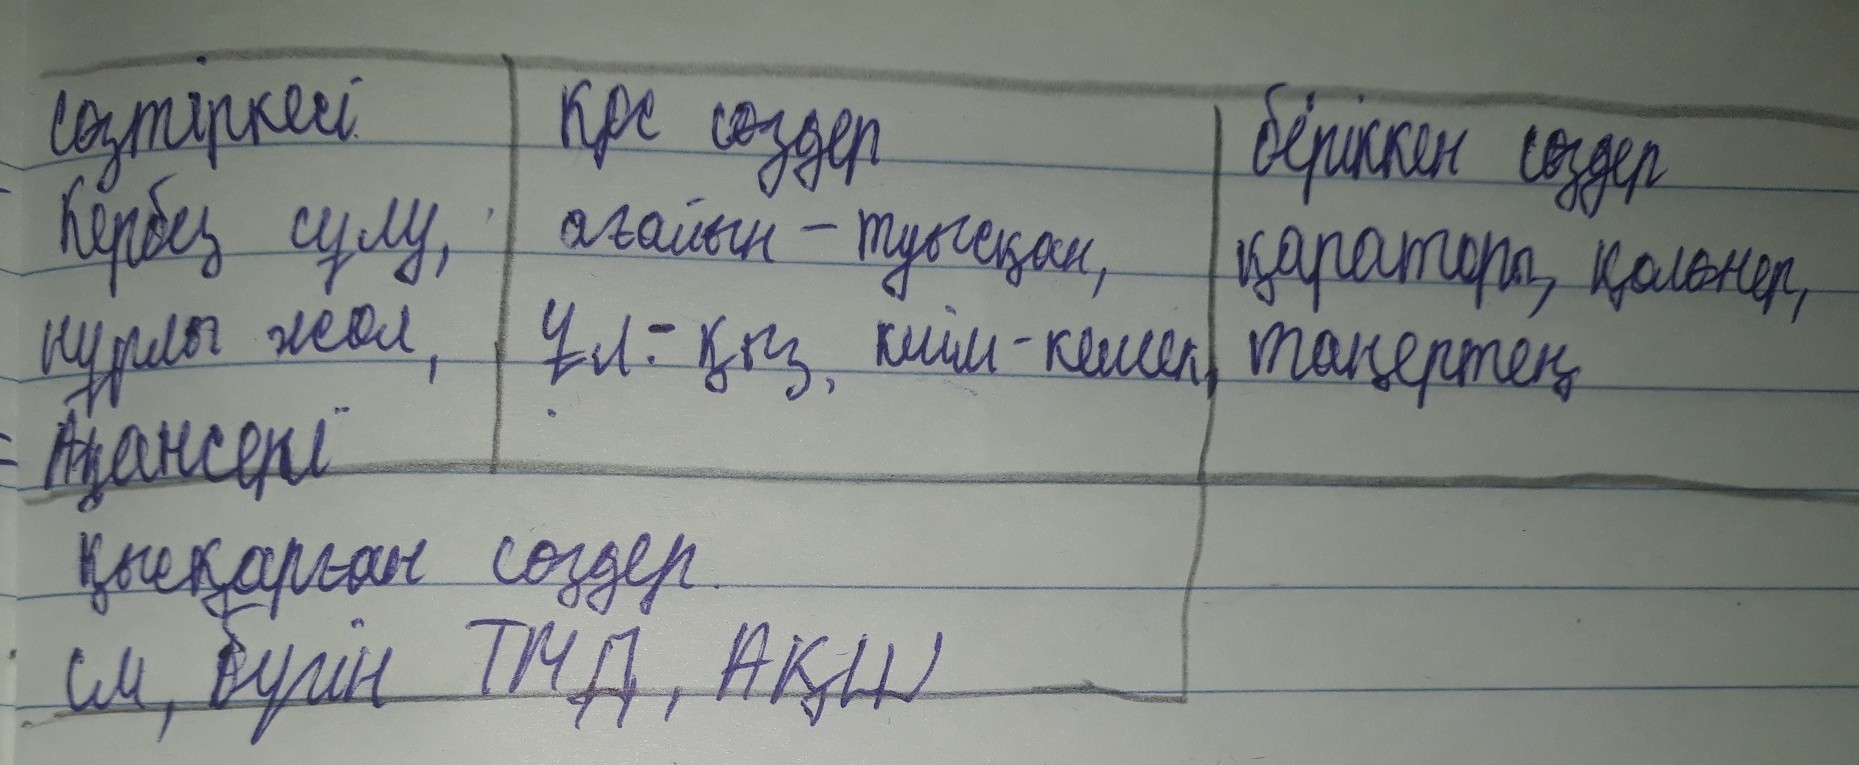 сөзтіркесі
Кербез сұлу,
нұрлы жол,
Ақансері
Қос сөздер
ағайын - туысқан,
Ұл - қыз, киім-кешек,
біріккен сөздер
қараторғ, қолөнер,
таңертең
қысқарған сөздер
см, бүгін ТМД, АҚШ